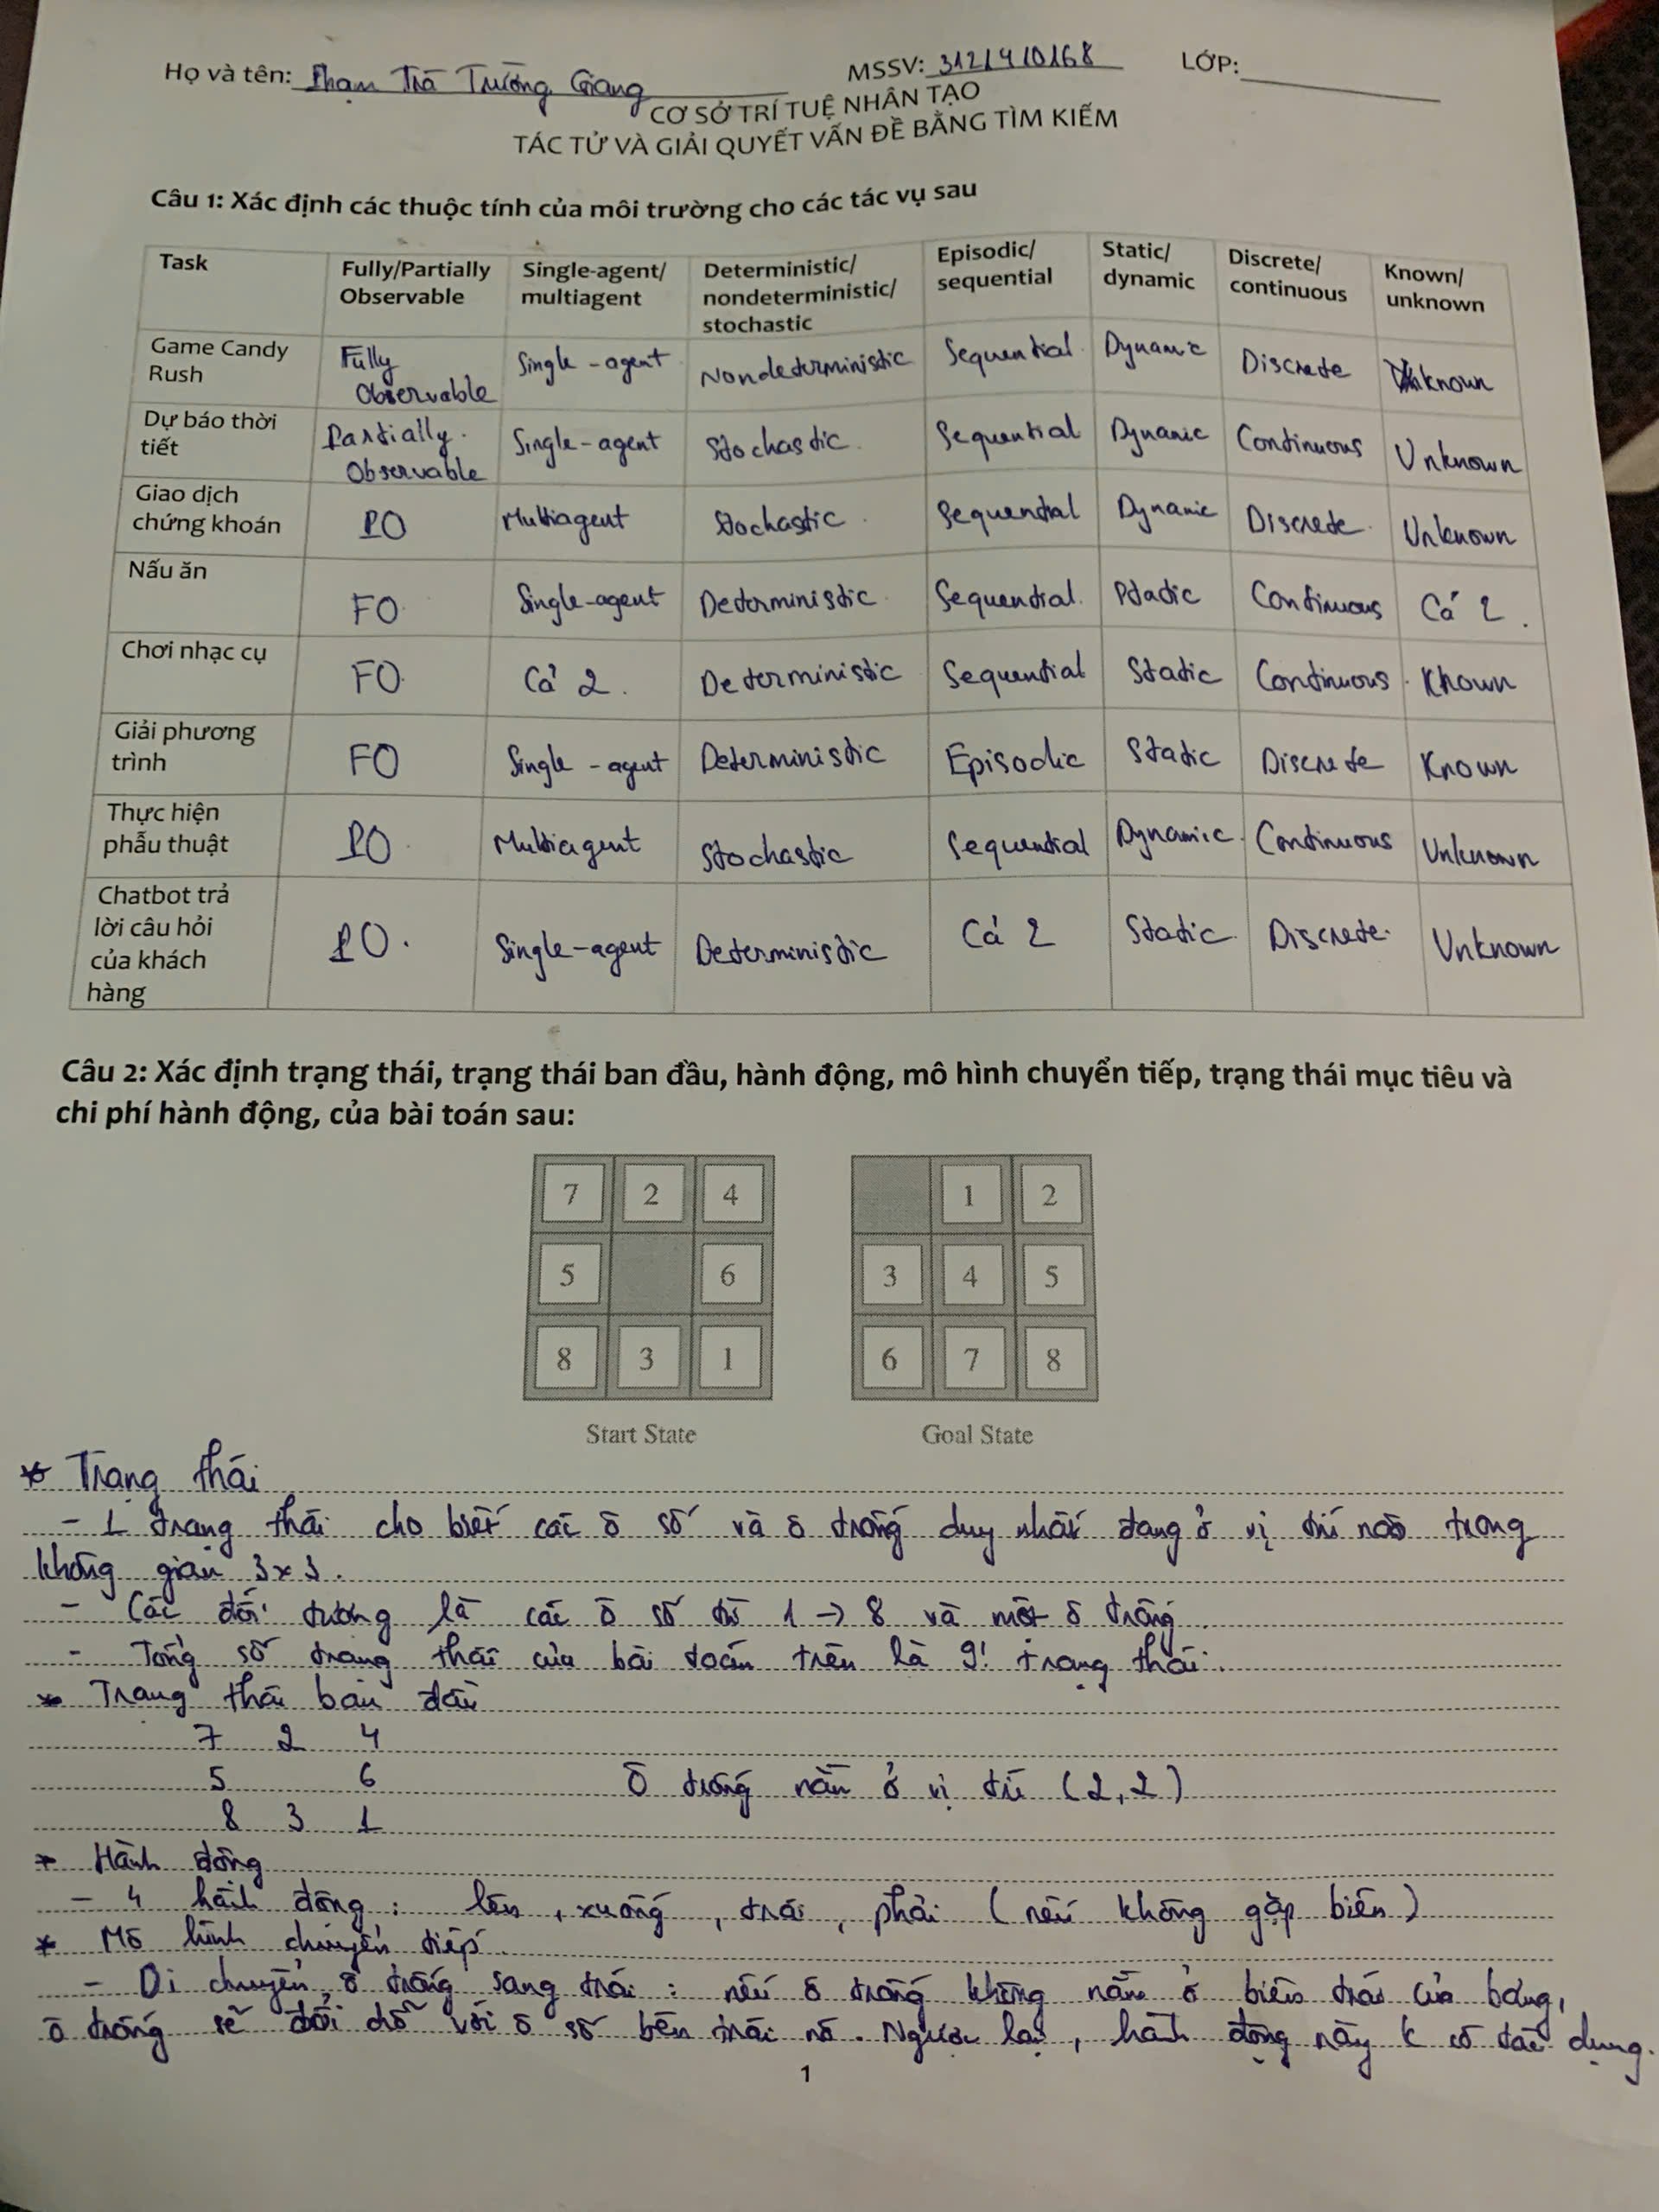 Họ và tên: Phạm Trà Trường Giang MSSV: 3121410168 LỚP:
CƠ SỞ TRÍ TUỆ NHÂN TẠO
TÁC TỬ VÀ GIẢI QUYẾT VẤN ĐỀ BẰNG TÌM KIẾM
Câu 1: Xác định các thuộc tính của môi trường cho các tác vụ sau
Task Fully/Partially Observable Single-agent/ multiagent Deterministic/ nondeterministic/ stochastic Episodic/ sequential Static/ dynamic Discrete/ continuous Known/ unknown
Game Candy Rush Fully Observable Single-agent Nondeterministic Sequential Dynamic Discrete known
Dự báo thời tiết Partially Observable Single-agent Stochastic Sequential Dynamic Continuous Unknown
Giao dịch chứng khoán PO Multiagent Stochastic Sequential Dynamic Discrete Unknown
Nấu ăn FO Single-agent Deterministic Sequential Static Continuous Cả 2.
Chơi nhạc cụ FO Cả 2. Deterministic Sequential Static Continuous Known
Giải phương trình FO Single-agent Deterministic Episodic Static Discrete Known
Thực hiện phẫu thuật PO Multiagent Stochastic Sequential Dynamic Continuous Unknown
Chatbot trả lời câu hỏi của khách hàng PO. Single-agent Deterministic Cả 2 Static Discrete Unknown
Câu 2: Xác định trạng thái, trạng thái ban đầu, hành động, mô hình chuyển tiếp, trạng thái mục tiêu và
chi phí hành động, của bài toán sau:
7 2 4 1 2
5 6 3 4 5
8 3 1 6 7 8
Start State Goal State
* Trạng thái
- 1 trạng thái cho biết các ô số và ô trống duy nhất đang ở vị trí nào trong
không gian 3x3.
- Các đối tượng là các ô số từ 1 -> 8 và một ô trống.
- Tổng số trạng thái của bài toán trên là 9! trạng thái.
* Trạng thái ban đầu
7 2 4
5 6 Ô trống nằm ở vị trí (2,2)
8 3 1
* Hành động
- 4 hành động: lên, xuống, trái, phải (nếu không gặp biên)
* Mô hình chuyển tiếp
- Di chuyển ô trống sang trái: nếu ô trống không nằm ở biên trái của bảng,
ô trống sẽ đổi chỗ với ô số bên trái nó. Ngược lại, hành động này k có tác dụng.
1